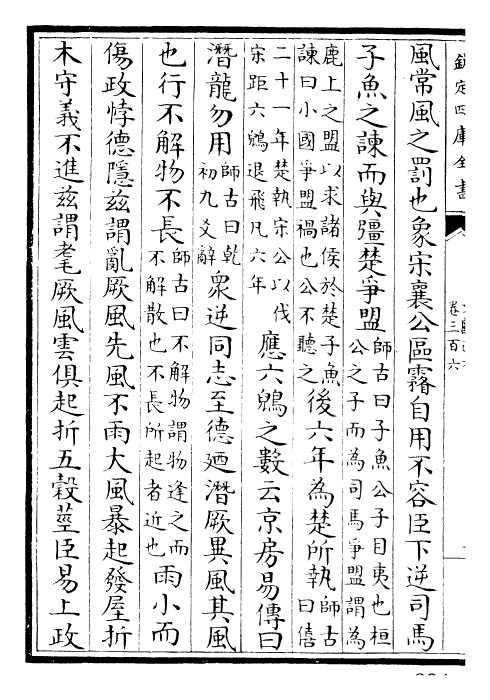 欽定四庫全書
卷三百六
風常風之罰也象宋襄公區霿自用不容臣下逆司馬
子魚之諫而與彊楚爭盟師古曰子魚公子目夷也桓公之子而為司馬爭盟謂為
鹿上之盟以求諸侯於楚子魚諫曰小國爭盟禍也公不聽之後六年為楚所執師古曰僖
二十一年楚執宋公以伐宋距六鶂退飛凡六年應六鶂之數云京房易傳曰
潛龍勿用師古曰乾初九爻辭衆逆同志至德廼潛厥異風其風
也行不解物不長師古曰不解物謂物逢之而不解散也不長所起者近也雨小而
傷政悖德隱茲謂亂厥風先風不雨大風暴起發屋折
木守義不進茲謂耄厥風雲俱起折五穀莖臣易上政